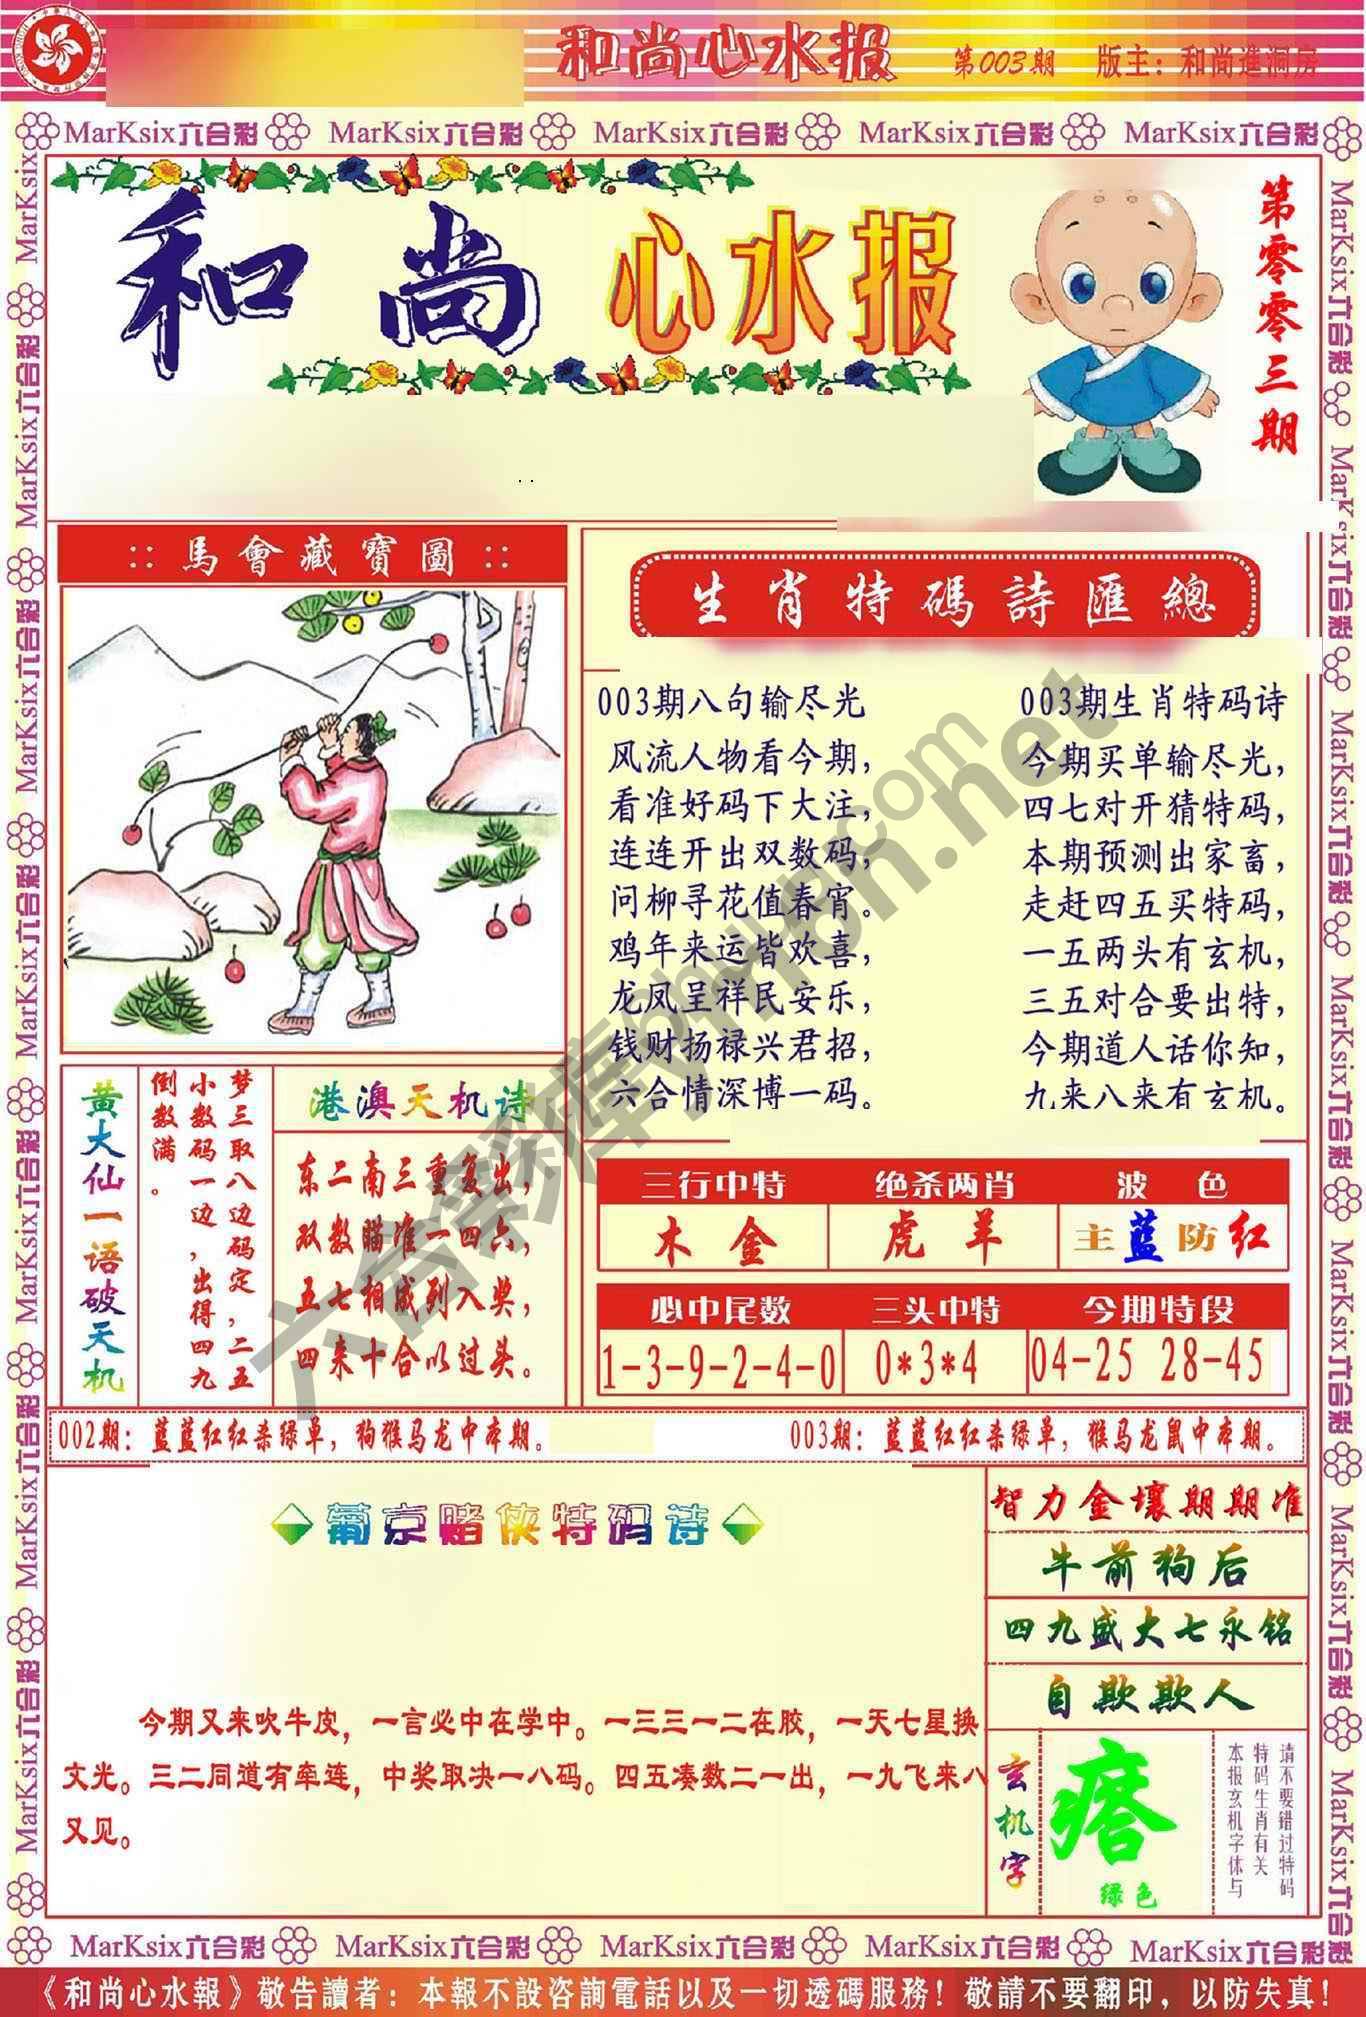 和尚心水报
第003期 版主：和尚進洞房
MarKsix六合彩 MarKsix六合彩 MarKsix六合彩 MarKsix六合彩 MarKsix六合彩
和尚心水报
第零零三期
::馬會藏寶圖::
生肖特碼詩匯總
003期八句输尽光
风流人物看今期，
看准好码下大注，
连连开出双数码，
问柳寻花值春宵。
鸡年来运皆欢喜，
龙凤呈祥民安乐，
钱财扬禄兴君招，
六合情深博一码。
003期生肖特码诗
今期买单输尽光，
四七对开猜特码，
本期预测出家畜，
走赶四五买特码，
一五两头有玄机，
三五对合要出特，
今期道人话你知，
九来八来有玄机。
黄大仙一语破天机
梦三取八边码定，二五
小数码一边，出得四九
倒数满。
港澳天机诗
东二南三重复出，
双数瞄准一四六，
五七相成列入奖，
四来十合以过头。
三行中特 绝杀两肖 波色
木金 虎羊 主蓝防红
必中尾数 三头中特 今期特段
1-3-9-2-4-0 0*3*4 04-25 28-45
002期：蓝蓝红红杀绿单，狗猴马龙中本期。
003期：蓝蓝红红杀绿单，猴马龙鼠中本期。
葡京赌侠特码诗
今期又来吹牛皮，一言必中在学中。一三三一二在胶，一天七星换
文光。三二同道有牵连，中奖取决一八码。四五凑数二一出，一九飞来八
又见。
智力金壤期期准
牛前狗后
四九盛大七永铭
自欺欺人
玄机字
瘩
绿色
请不要错过特码
特码生肖有关
本报玄机字体与
MarKsix六合彩 MarKsix六合彩 MarKsix六合彩 MarKsix六合彩 MarKsix六合彩
《和尚心水報》敬告讀者：本報不設咨詢電話以及一切透碼服務！敬請不要翻印，以防失真！